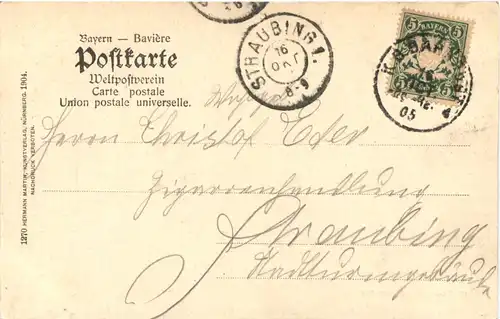 Bayern – Bavière
Postkarte
Weltpostverein
Carte postale
Union postale universelle.
STRAUBING 1.
16
OKT
8-9
5 5
BAYERN
5 5
05
Herrn Christof Eder
Zigarrenhandlung
Straubing
Stadtturmgebäude
1270 HERMANN MARTIN, KUNSTVERLAG, NÜRNBERG. 1904.
NACHDRUCK VERBOTEN.